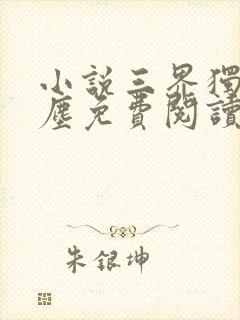 小說三界獨
塵免費閱讀
朱銀坤